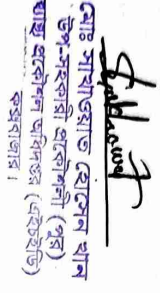 মোঃ সাখাওয়াত হোসেন খান
উপ-সহকারী প্রকৌশলী (পুর)
স্বাস্থ্য প্রকৌশল অধিদপ্তর (এইচইডি)
কক্সবাজার।